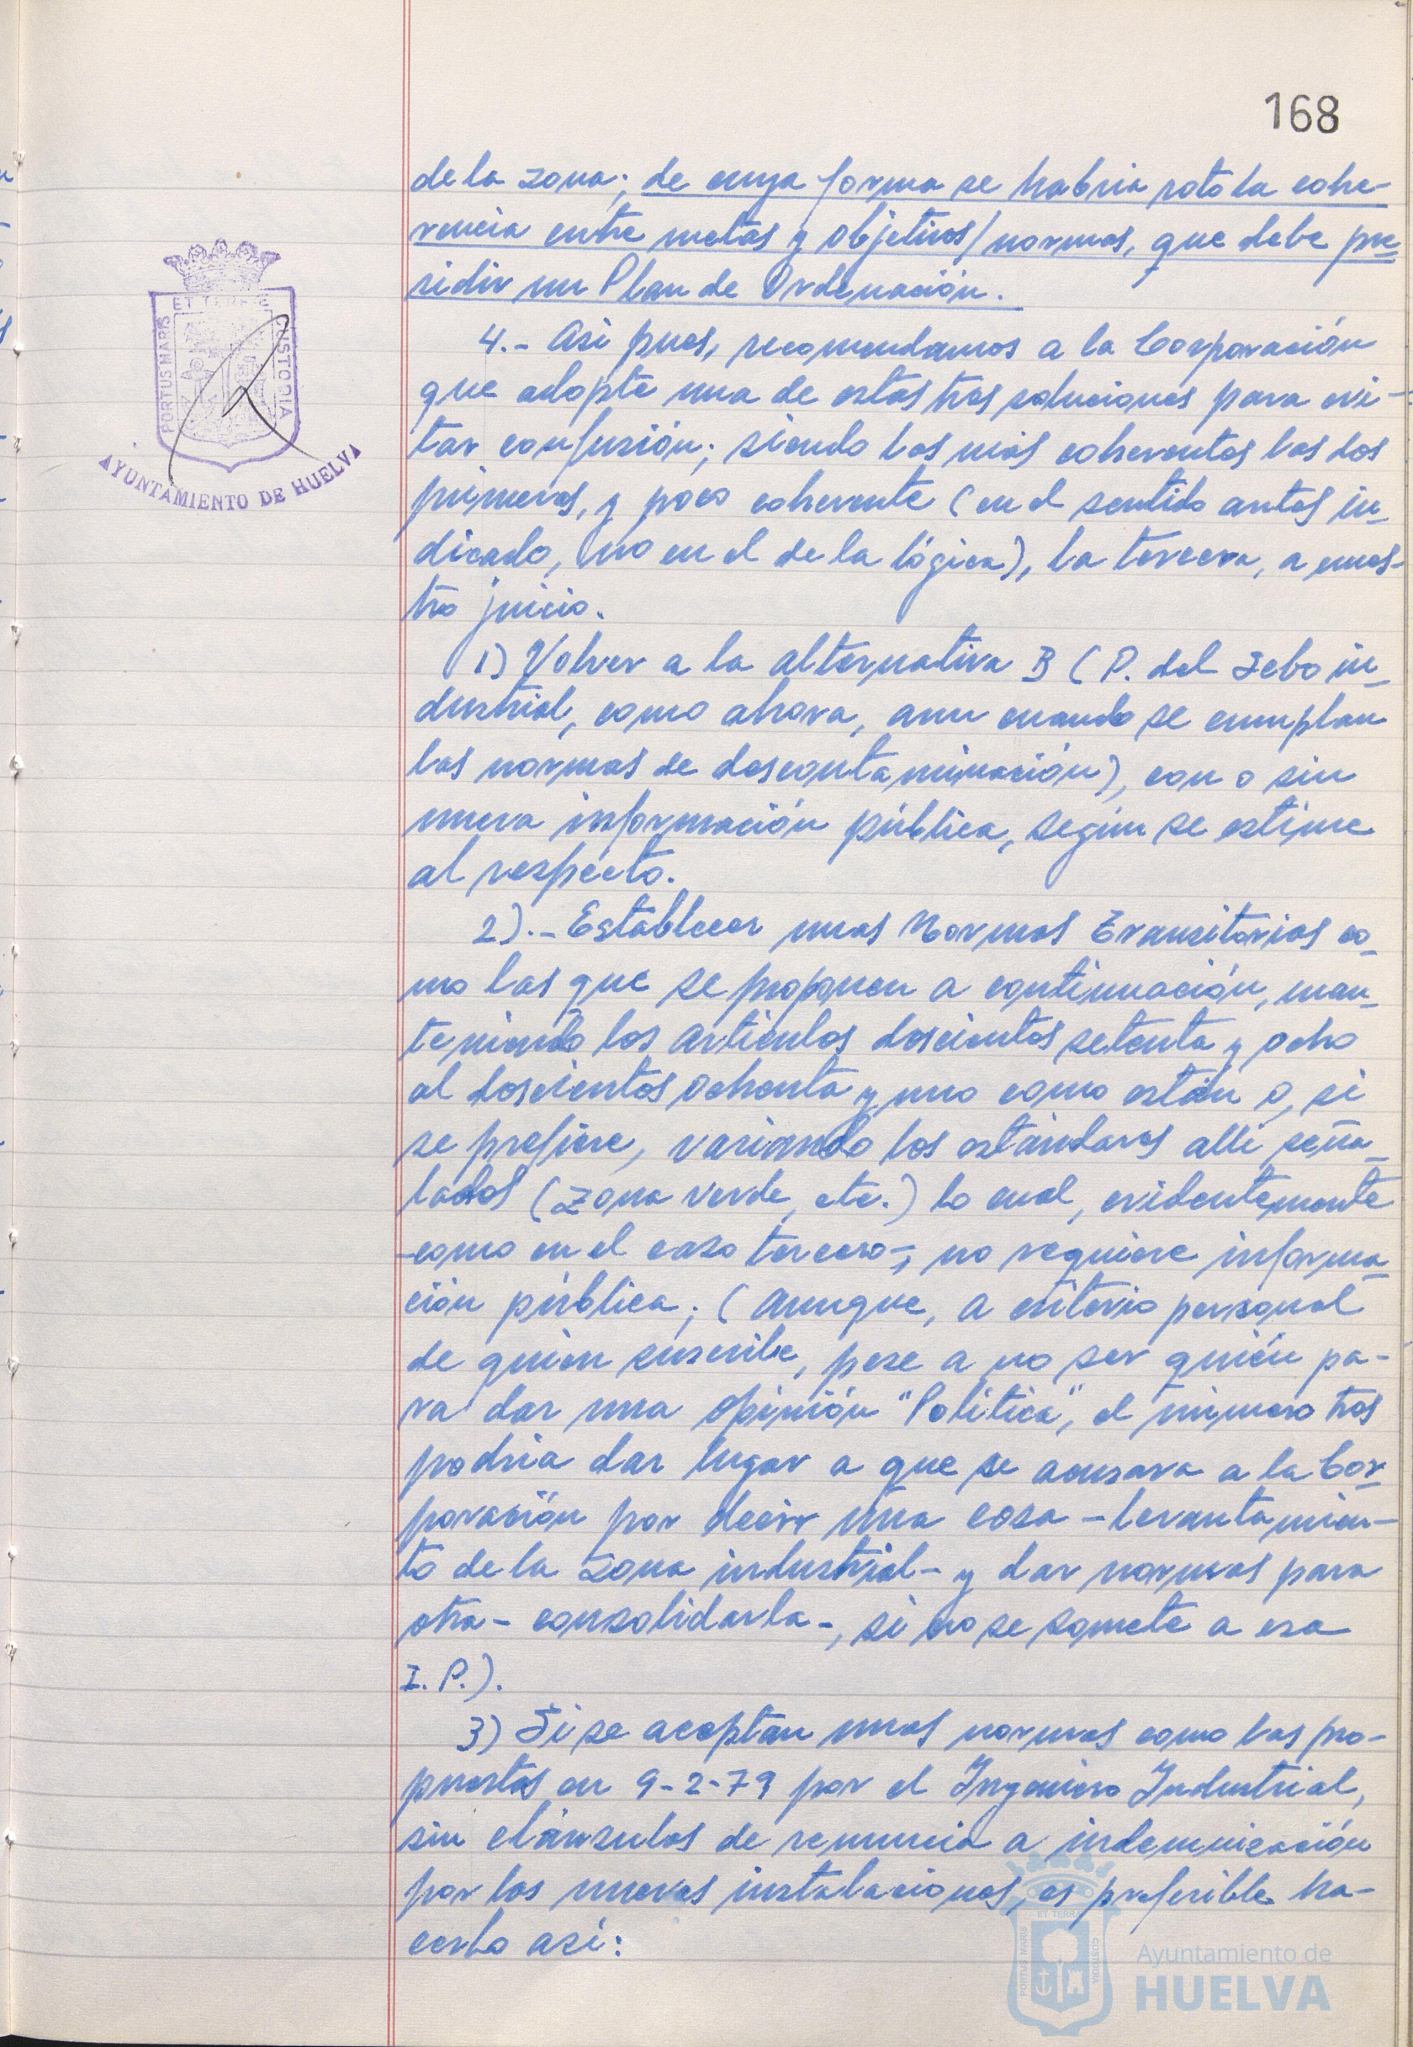 168
de la zona; de cuya forma se habria roto la cohe-
rencia entre metas y objetivos/normas, que debe pre
sidir un Plan de Ordenación.
4.- Asi pues, recomendamos a la Corporación
que adopte una de estas tres soluciones para evi-
tar confusión; siendo las más coherentes las dos
primeras, y poco coherente (en el sentido antes in-
dicado, no en el de la lógica), la tercera, a nues-
tro juicio.
1) Volver a la alternativa B (P. del Sebo in-
dustrial, como ahora, aun cuando se cumplan
las normas de descontaminación), con o sin
nueva información pública, según se estime
al respecto.
2).- Establecer unas Normas Transitorias co-
mo las que se proponen a continuación, man-
teniendo los articulos doscientos setenta y ocho
al doscientos ochenta y uno como están o, si
se prefiere, variando los estándares alli seña-
lados (zona verde, etc.) lo cual, evidentemente
-como en el caso tercero-, no requiere informa-
ción pública; (aunque, a criterio personal
de quien suscribe, pese a no ser quién pa-
ra dar una opinión "Politica", el número tres
podria dar lugar a que se acusara a la Cor-
poración por decir una cosa -levantamien-
to de la zona industrial- y dar normas para
otra- consolidarla-, si no se somete a esa
I.P.).
3) Si se aceptan unas normas como las pro-
puestas en 9-2-79 por el Ingeniero Industrial,
sin cláusulas de renuncia a indemnización
por las nuevas instalaciones, es preferible ha-
cerlo asi:
PORTUS MARIS ET TERRAE CUSTODIA
AYUNTAMIENTO DE HUELVA
PORTUS MARIS ET TERRAE CUSTODIA
Ayuntamiento de
HUELVA